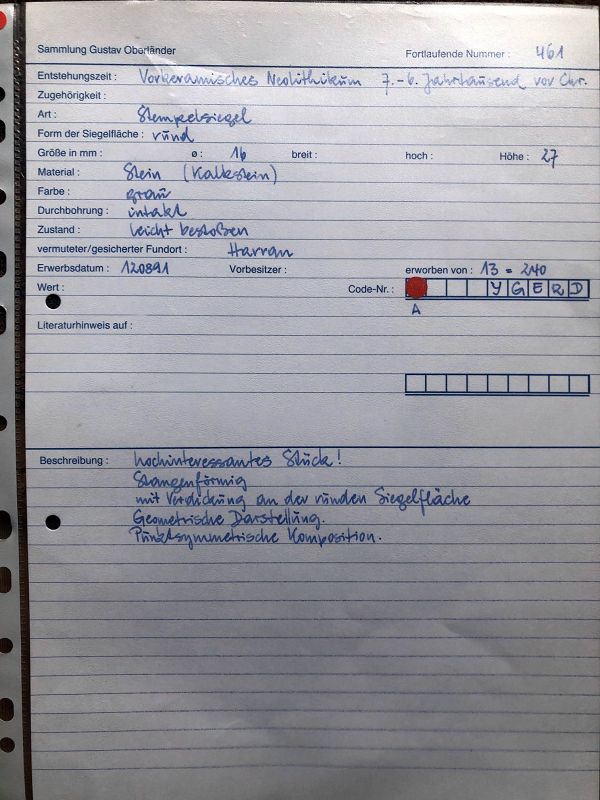 Sammlung Gustav Oberländer Fortlaufende Nummer : 461
Entstehungszeit : Vorkeramisches Neolithikum 7.-6. Jahrtausend vor Chr.
Zugehörigkeit :
Art : Stempelsiegel
Form der Siegelfläche : rund
Größe in mm : ø : 16 breit : hoch : Höhe : 27
Material : Stein (Kalkstein)
Farbe : grau
Durchbohrung : intakt
Zustand : leicht bestoßen
vermuteter/gesicherter Fundort : Harran
Erwerbsdatum : 120891 Vorbesitzer : erworben von : 13 = 240
Wert : Code-Nr. : YGERD
A
Literaturhinweis auf :
Beschreibung : hochinteressantes Stück!
Stangenförmig
mit Verdickung an der runden Siegelfläche
Geometrische Darstellung.
Punktsymmetrische Komposition.